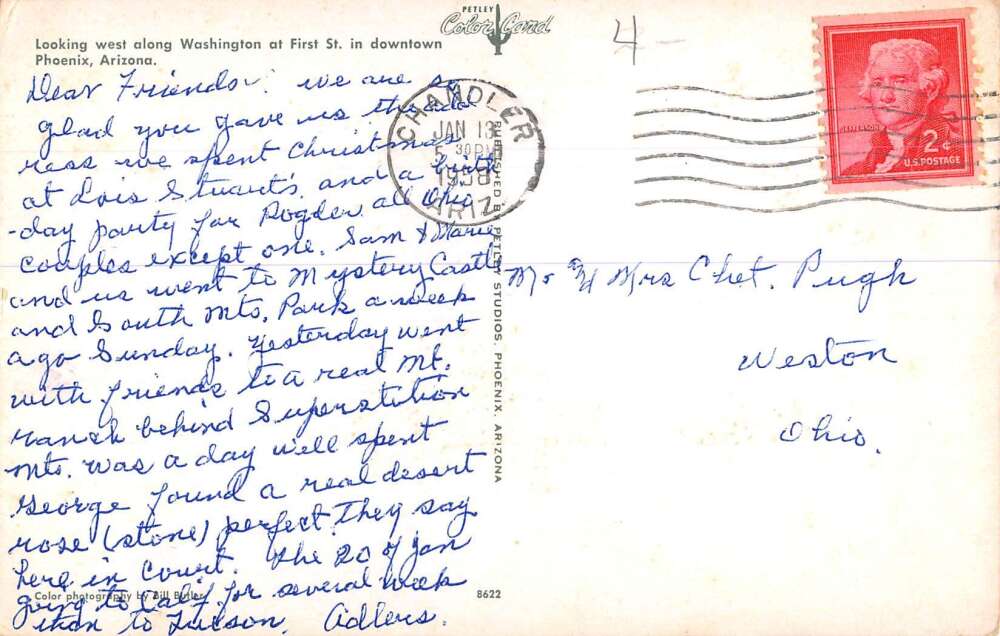 PETLEY
Color Card
4 -
Looking west along Washington at First St. in downtown
Phoenix, Arizona.
Dear Friends. we are so
glad you gave us the add
ress we spent Christmas
at Lois Stuart's and a birth
-day party for Rogder all Ohio
couples except one. Sam & Marie
and us went to Mystery Castle
and South Mts. Park a week
ago Sunday. Yesterday went
with friends to a real Mt.
ranch behind Superstition
Mts. was a day well spent
George found a real desert
rose (stone) perfect they say
here in court. The 20 of Jan
going to Calif. for several week
than to Tucson. Adlers.
Color photography by Bill Butler
8622
PUBLISHED BY PETLEY STUDIOS, PHOENIX, ARIZONA
CHANDLER
JAN 13
5 30 PM
1958
ARIZ.
JEFFERSON
2¢
U.S. POSTAGE
Mr & Mrs Chet. Pugh
Weston
Ohio.